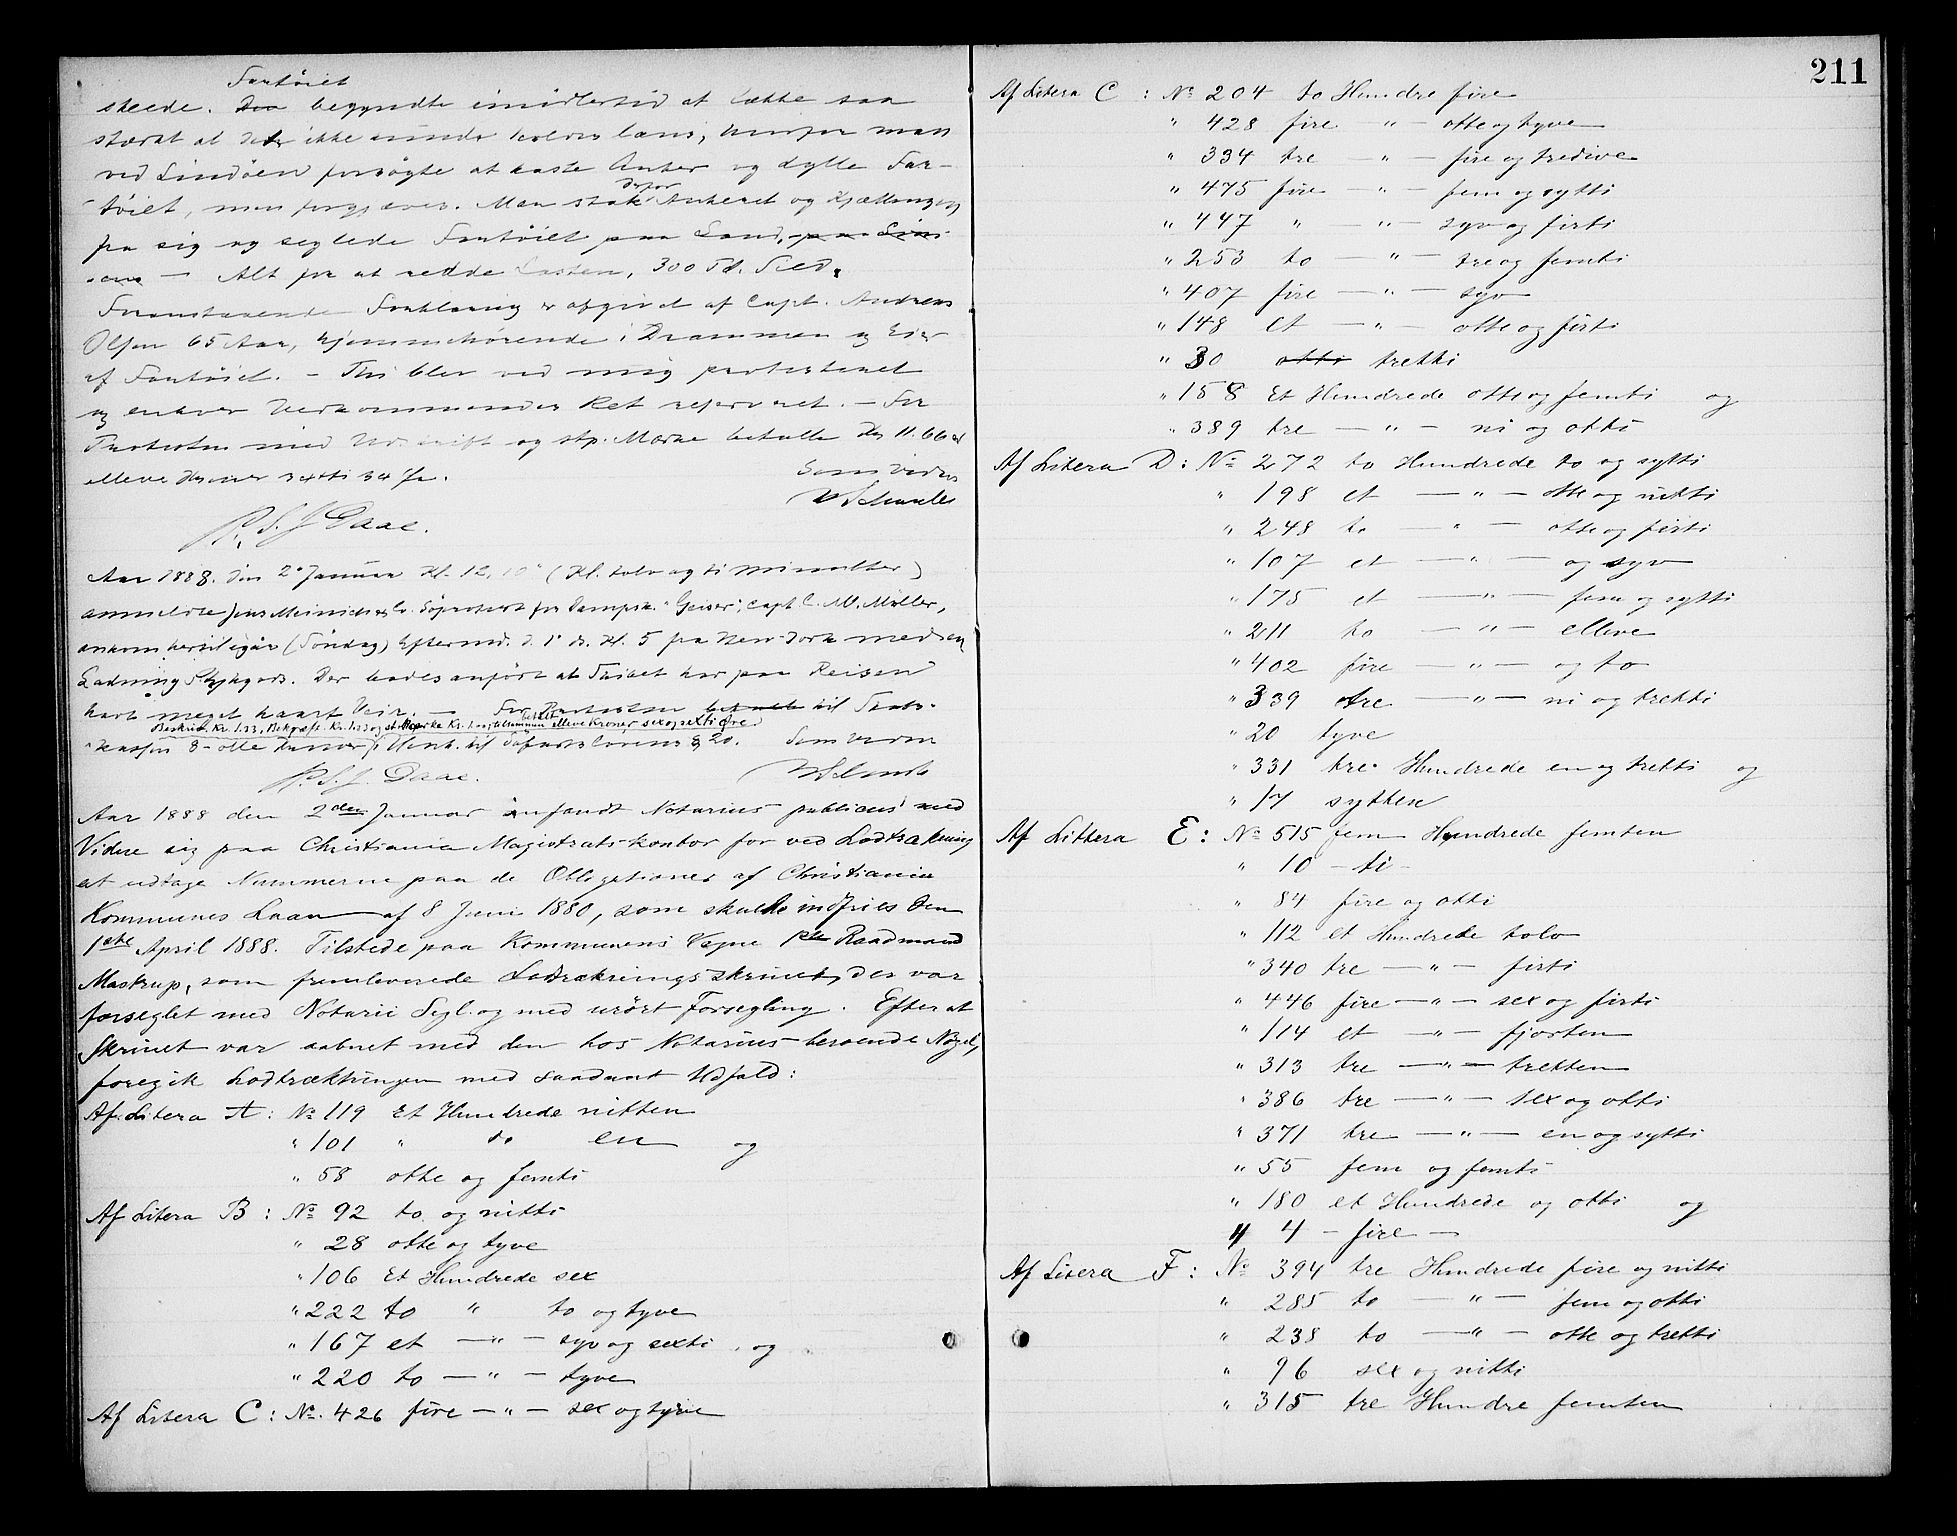 Fartöiet
skeede. begyndte imidlertid at lække saa
stærkt at det ikke kunde holdes læns, hvorfor man
ved Lindöen forsögte at kaste Anker og dylle Far-
töiet, men forgjæves. Man stak derfor Ankeret og Kjættingen
fra sig og seglede Fartöiet paa Land,
– Alt for at redde Lasten, 300 Td. Sild.
Foranstaaende Forklaring er afgivet af Capt. Andreas
Olsen 65 Aar, hjemmehörende i Drammen og Eier
af Fartöiet. – Thi blev ved mig protesteret
og enhver Vedkommendes Ret reserveret. – For
Protesten med Udskrift og stp. Mærke betalte Kr 11.66
elleve Kroner
Som Vidne
P. S. J. Daae.
Aar 1888. den 2 Januar Kl. 12,10 (Kl. tolv og ti minutter)
anmeldte Jens Meinich & Co. Söprotest for Dampsk. "Geiser", Capt. C. M. Möller,
ankom hertil igår (Söndag) Eftermd. d. 1 ds. Kl. 5 fra New-York med en
Ladning Stykgods. Der bades anfört at Skibet har paa Reisen
havt meget haart Veir. – For Protesten betalt til Stats-
Beskrid. Kr. 1.33, og st. Mærke Kr. tilsammen elleve Kroner sex og sexti Öre.
kassen 8 – otte Kroner, til 20. Som Vidne
P. S. J. Daae.
Aar 1888 den 2den Januar indfandt Notarius publicus med
Vidne sig paa Christiania Magistrats-kontor for ved Lodtrækning
at udtage Nummerne paa de Obligationer af Christiania
Kommunes Laan af 8 Juni 1880, som skulle indfries den
1ste April 1888. Tilstede paa Kommunens Vegne Raadmand
Mastrup, som fremleverede Lodtræknings skrinet, der var
forseglet med Notarii Segl og med urört Forsegling. Efter at
Skrinet var aabnet med den hos Notarius beroende Nögel,
foregik Lodtrækningen med saadant Udfald:
Af Litera A: No 119 Et Hundrede nitten
" 101 " do en og
" 58 otte og femti
Af Litera B: No 92 to og nitti
" 28 otte og tyve
" 106 Et Hundrede sex
" 222 to " to og tyve
" 167 et – " – syv og sexti, og
" 220 to – " – tyve
Af Litera C: No. 426 fire – " – sex og tyve
211
Af Litera C: No 204 to Hundre fire
" 428 fire – " – otte og tyve
" 334 tre – " – fire og tredive
" 475 fire – " – fem og sytti
" 447 " – " – syv og firti
" 253 to – " – tre og femti
" 407 fire – " – syv
" 148 et – " – otte og firti
" 30 otti tretti
" 158 Et Hundrede otte og femti og
" 389 tre – " – ni og otti
Af Litera D: No 272 to Hundrede to og sytti
" 198 et – " – otte og nitti
" 248 to – " – otte og firti
" 107 et – " – og syv
" 175 et – " – fem og sytti
" 211 to – " – elleve
" 402 fire – " – og to
" 339 tre – " – ni og tretti
" 20 tyve
" 331 tre Hundrede en og tretti og
" 17 sytten
Af Littera E: No 515 fem Hundrede femten
" 10 – ti –
" 84 fire og otti
" 112 et Hundrede tolv
" 340 tre – " – firti
" 446 fire – " – sex og firti
" 114 et – " – fjorten
" 313 tre – " – tretten
" 386 tre – " – sex og otti
" 371 tre – " – en og sytti
" 55 fem og femti
" 180 et Hundrede og otti og
" 4 – fire –
Af Litera F: No 394 tre Hundrede fire og nitti
" 285 to – " – fem og otti
" 238 to – " – otte og tretti
" 96 sex og nitti
" 315 tre Hundre femten